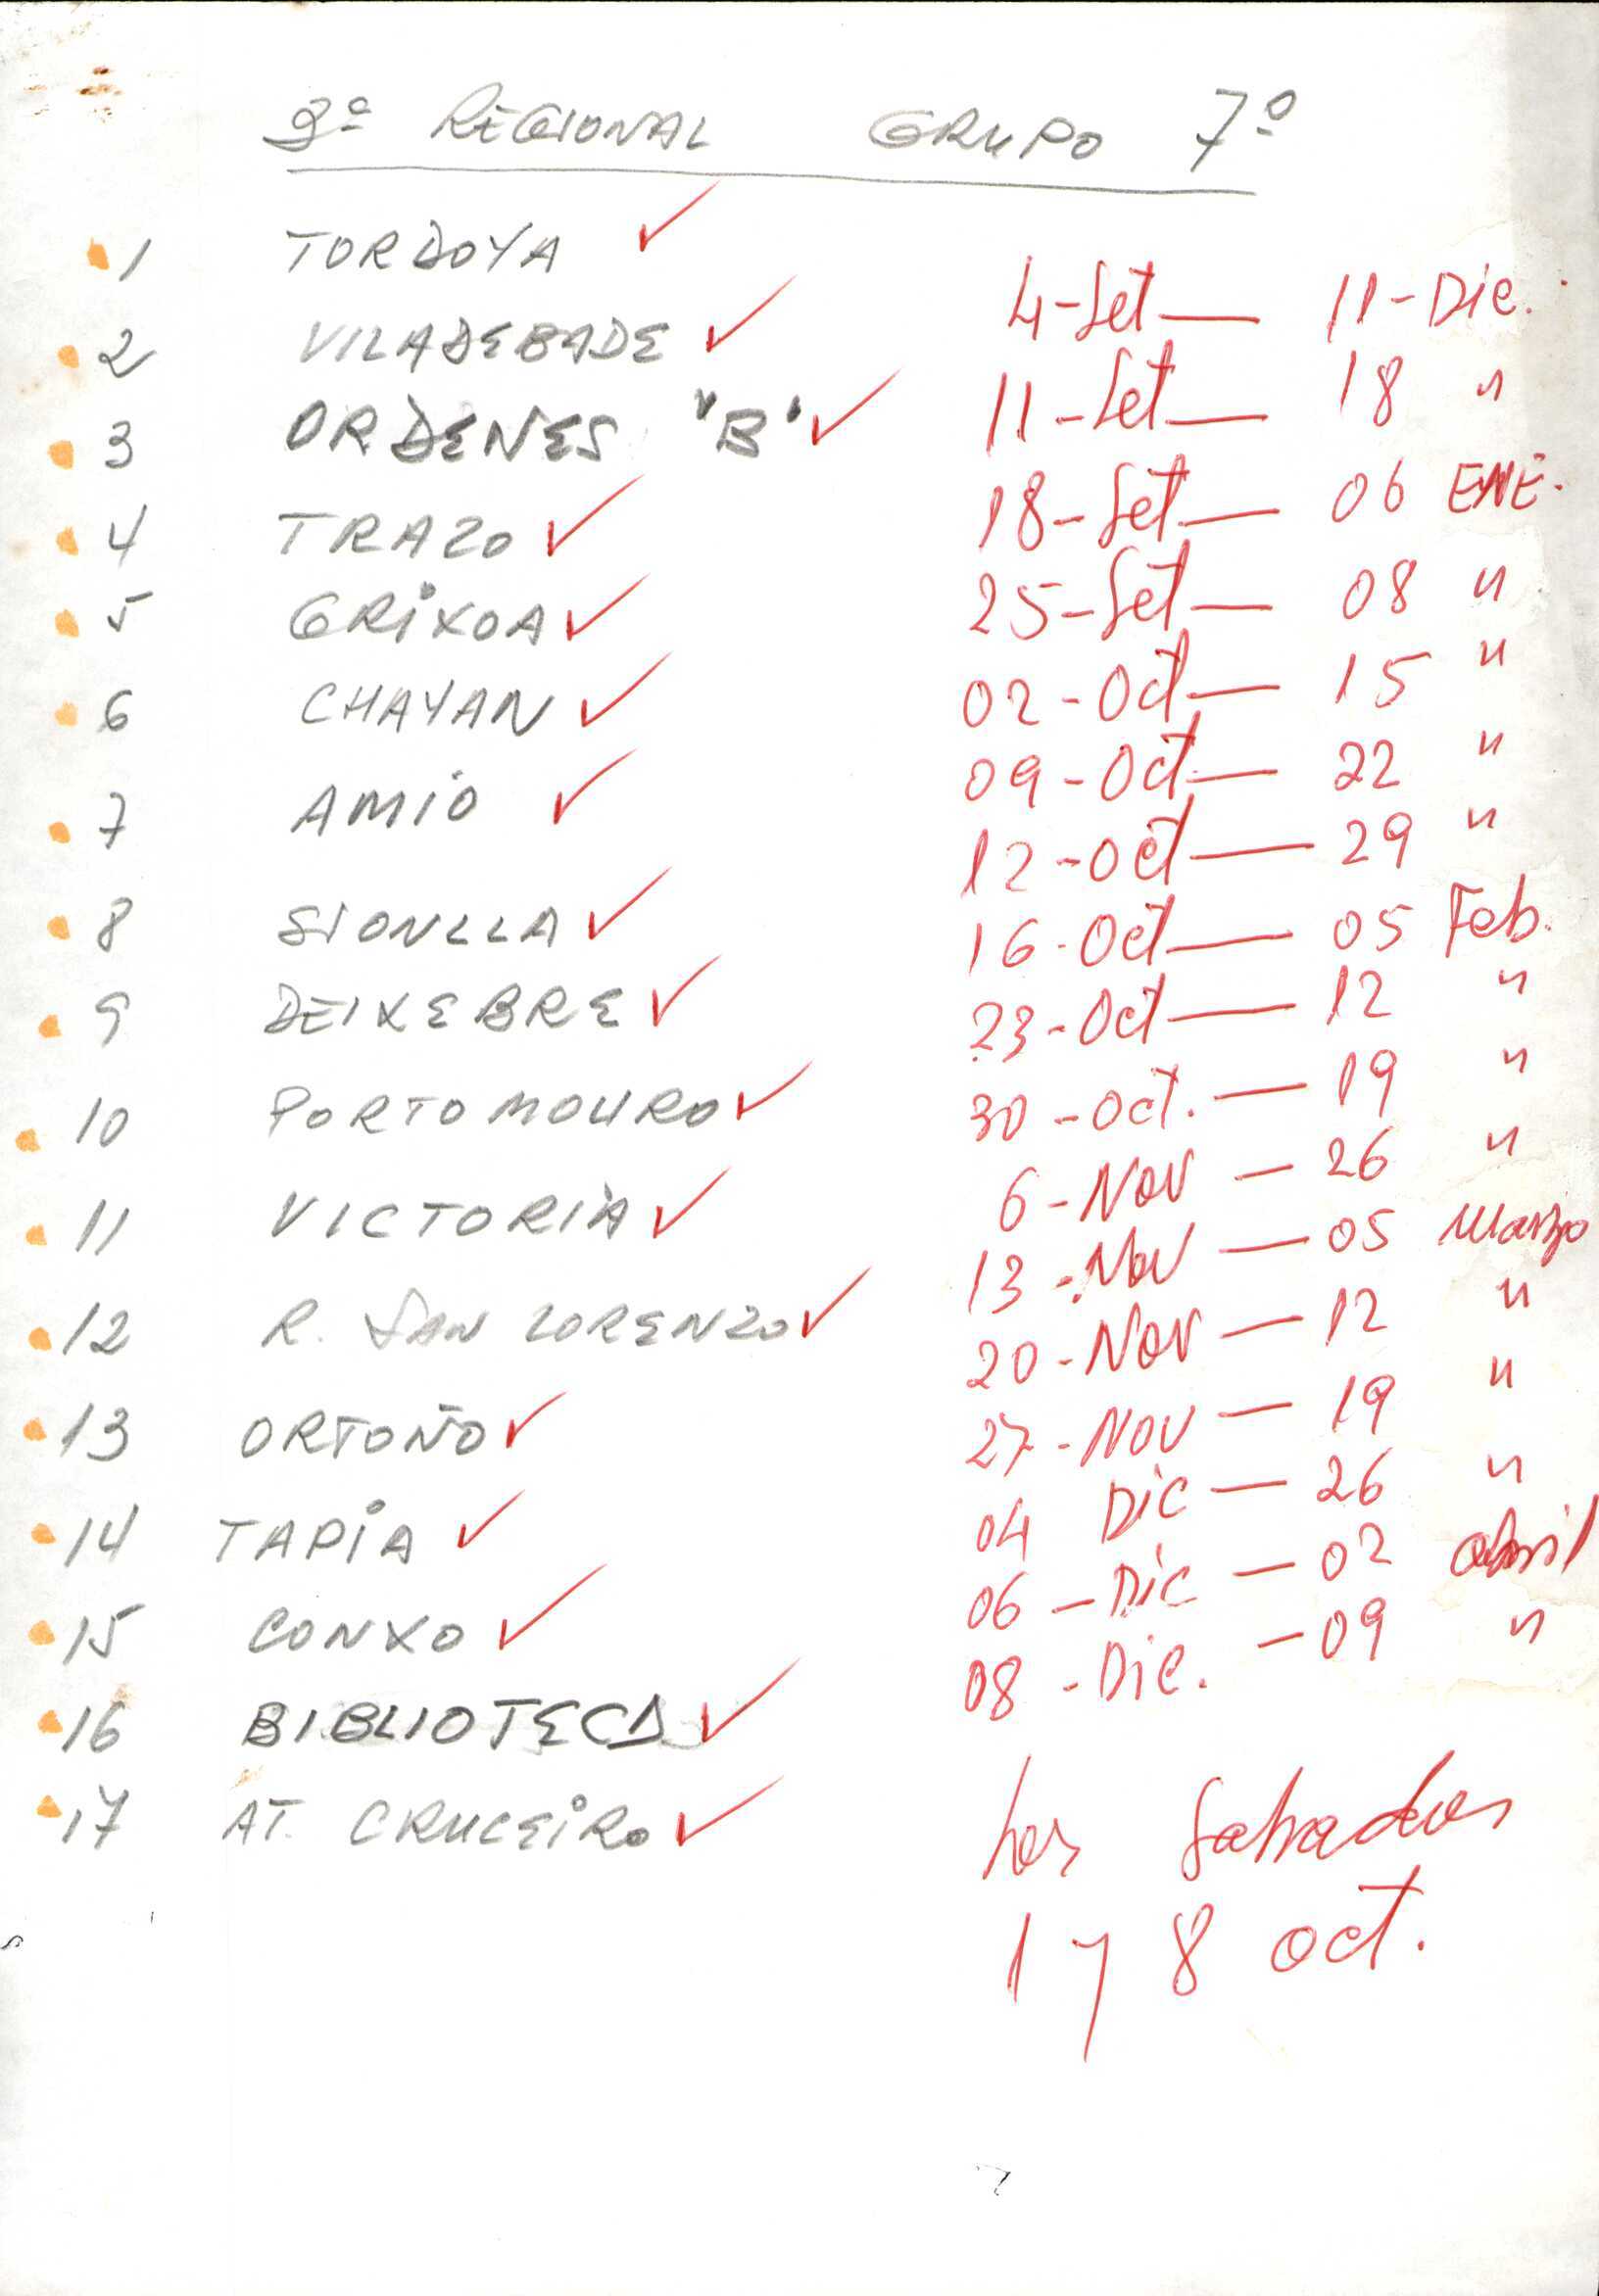 3ª REGIONAL GRUPO 7º
1 TORDOYA ✓
2 VILADEBADE ✓
3 ORDENES "B" ✓
4 TRAZO ✓
5 GRIXOA ✓
6 CHAYAN ✓
7 AMIO ✓
8 SIONLLA ✓
9 DEIXEBRE ✓
10 PORTOMOURO ✓
11 VICTORIA ✓
12 R. SAN LORENZO ✓
13 ORTOÑO ✓
14 TAPIA ✓
15 CONXO ✓
16 BIBLIOTECA ✓
17 AT. CRUCEIRO ✓
4-Set — 11-Dic.
11-Set — 18 "
18-Set — 06 ENE.
25-Set — 08 "
02-Oct — 15 "
09-Oct — 22 "
12-Oct — 29 "
16-Oct — 05 Feb.
23-Oct — 12 "
30-Oct. — 19 "
6-Nov — 26 "
13-Nov — 05 Marzo
20-Nov — 12 "
27-Nov — 19 "
04 Dic — 26 "
06-Dic — 02 abril
08-Dic. — 09 "
Los Sabados
1 y 8 oct.